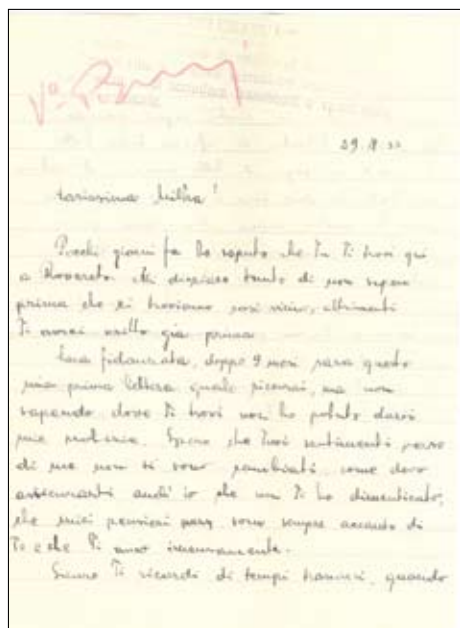 Vº
29.
Carissima Milka!
Pochi giorni fa ho saputo che Tu Ti trovi qui
a Rovereto. Mi dispiace tanto di non sapere
prima che ci troviamo così vicini, altrimenti
Ti avrei scritto già prima.
Cara fidanzata, doppo 9 mesi sara questa
mia prima lettera quale ricevrai, ma non
sapendo dove Ti trovi non ho potuto darti
mie notizie. Spero che Tuoi sentimenti verso
di me non si sono cambiati, come devo
assicurarti anch' io che non Ti ho dimenticato,
che miei pensieri sono sempre accanto di
Te e che Ti amo
Sicuro Ti ricordi di tempi trascorsi, quando